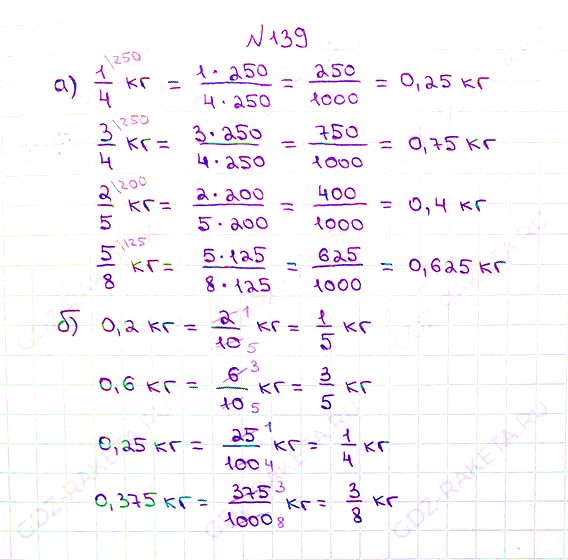 №139
а) 1/4 \250 кг = 1·250/4·250 = 250/1000 = 0,25 кг
3/4 \250 кг = 3·250/4·250 = 750/1000 = 0,75 кг
2/5 \200 кг = 2·200/5·200 = 400/1000 = 0,4 кг
5/8 \125 кг = 5·125/8·125 = 625/1000 = 0,625 кг
б) 0,2 кг = 2 1/10 5 кг = 1/5 кг
0,6 кг = 6 3/10 5 кг = 3/5 кг
0,25 кг = 25 1/100 4 кг = 1/4 кг
0,375 кг = 375 3/1000 8 кг = 3/8 кг
GDZ-RAKETA.RU
GDZ-RAKETA.RU